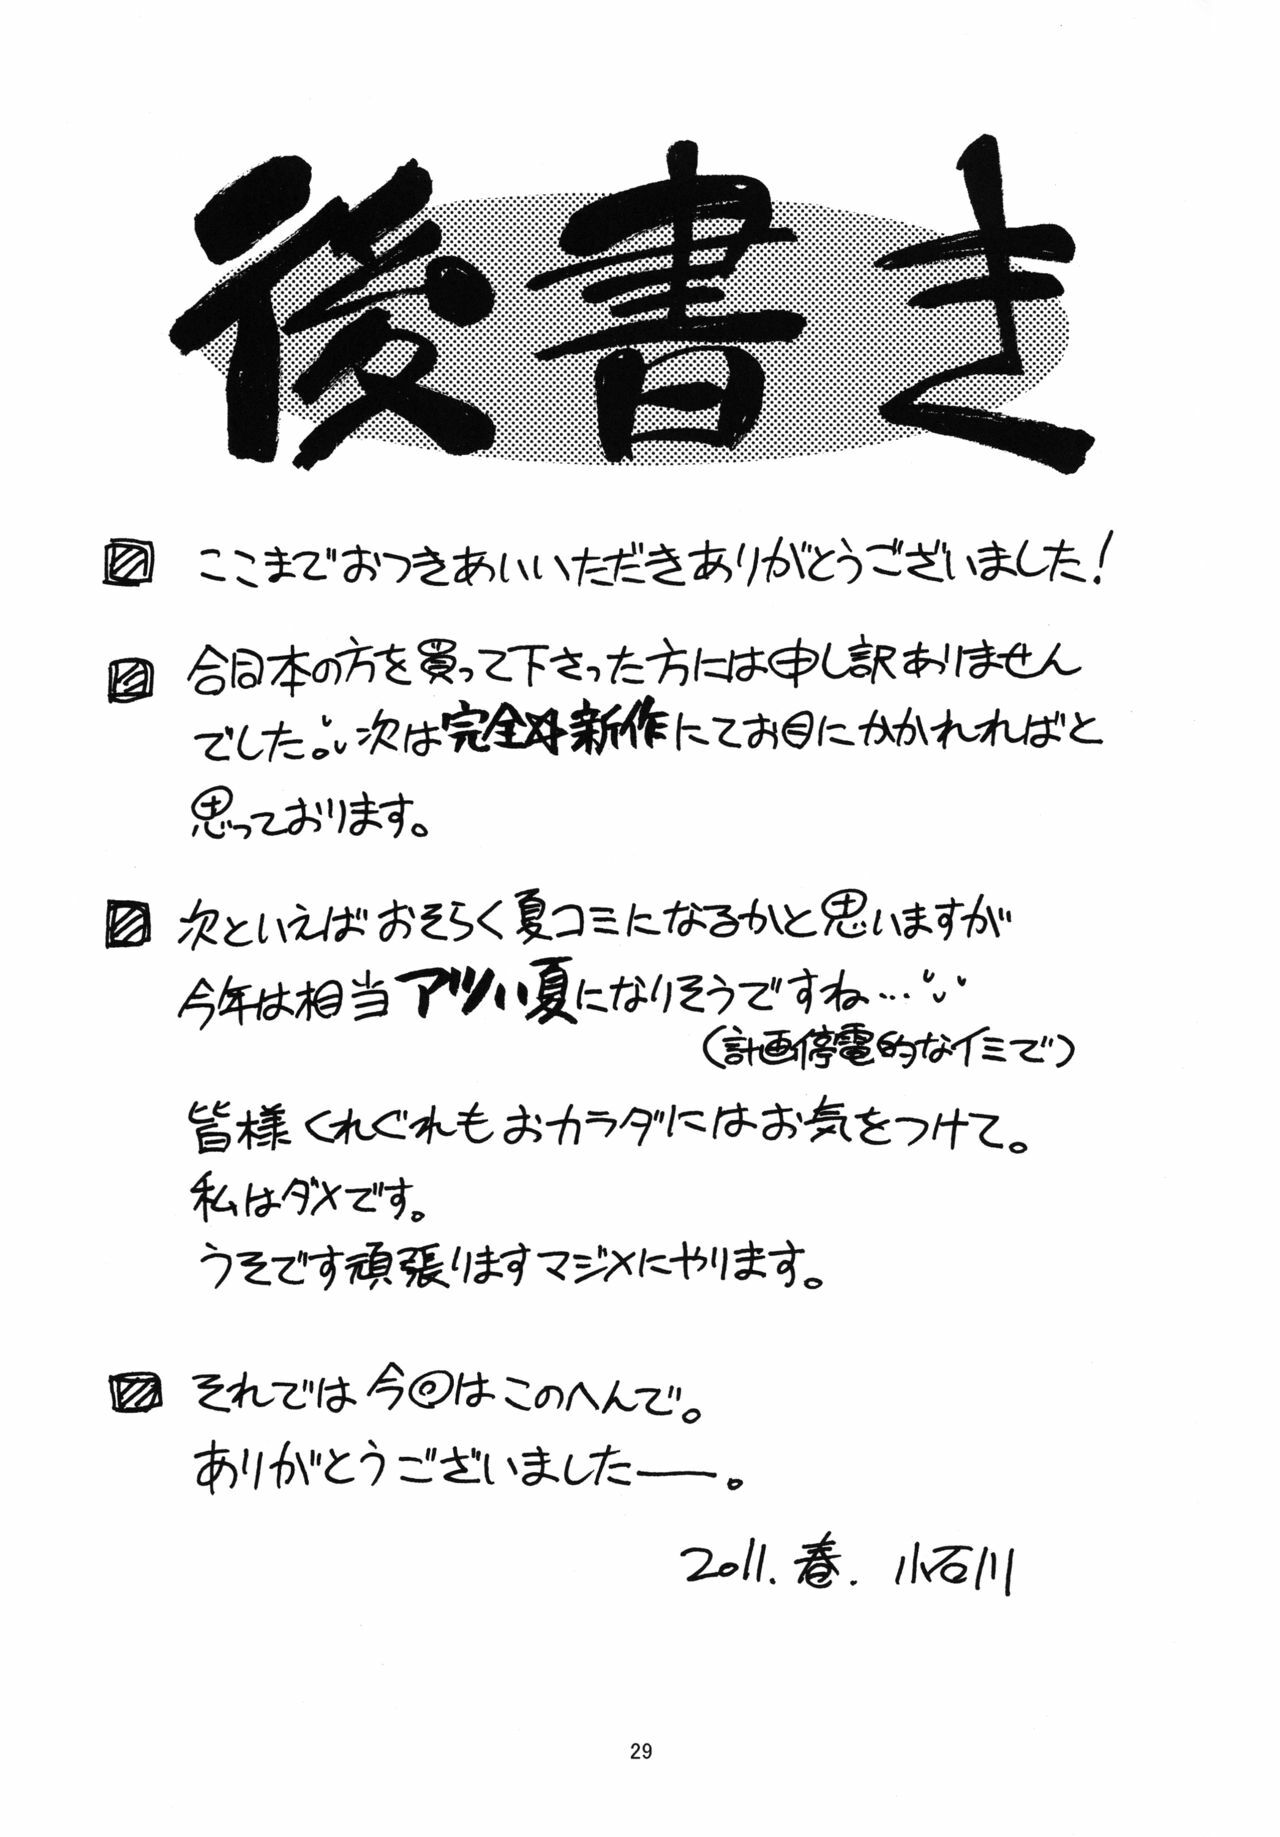 後書き
ここまでおつきあいいただきありがとうございました!
合同本の方を買って下さった方には申し訳ありません
でした。次は完全新作にてお目にかかれればと
思っております。
次といえばおそらく夏コミになるかと思いますが
今年は相当アツい夏になりそうですね…
(計画停電的なイミで)
皆様くれぐれもおカラダにはお気をつけて。
私はダメです。
うそです頑張りますマジメにやります。
それでは今回はこのへんで。
ありがとうございました――。
2011.春.小石川
29